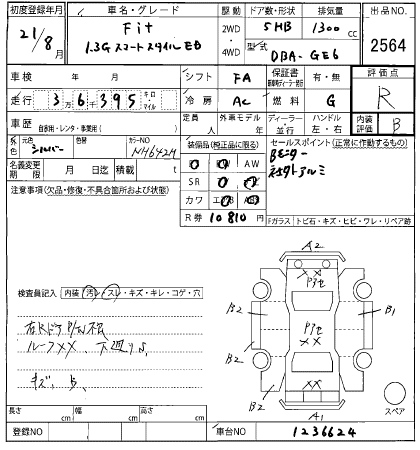 初度登録年月 車名・グレード 駆動 ドア数・形状 排気量 出品NO.
21/8月 Fit 2WD・4WD 5HB 1300cc 2564
1.3G スマートスタイルED 型式 DBA-GE6
車検 年 月 シフト FA 保証書 有・無 評価点
走行 3万6千395 キロ マイル 冷房 AC 燃料 G R
車歴 自家用・レンタ・事業用( ) 定員 人 外車モデル 年 ディーラー・並行 ハンドル 左・右 内装評価 B
外色 元色 シルバー 色替 カラーNO NH642M 装備品(純正品に限る) セールスポイント(正常に作動するもの)
名義変更期限 月 日迄 積載 t AW Bモニター
注意事項(欠品・修復・不具合箇所および状態) SR 社外アルミ
カワ エアB
R券 10810円 Fガラス トビ石・キズ・ヒビ・ワレ・リペア跡
A2
××
Pアセ
検査員記入 内装 汚レ・スレ・キズ・キレ・コゲ・穴
B2 B1
Pアセ
××
ルーフ××、下廻りS
B2 B2
キズ、B、
××
B2 A1
スペア
長さ cm 幅 cm 高さ cm
登録NO 車台NO 1236624